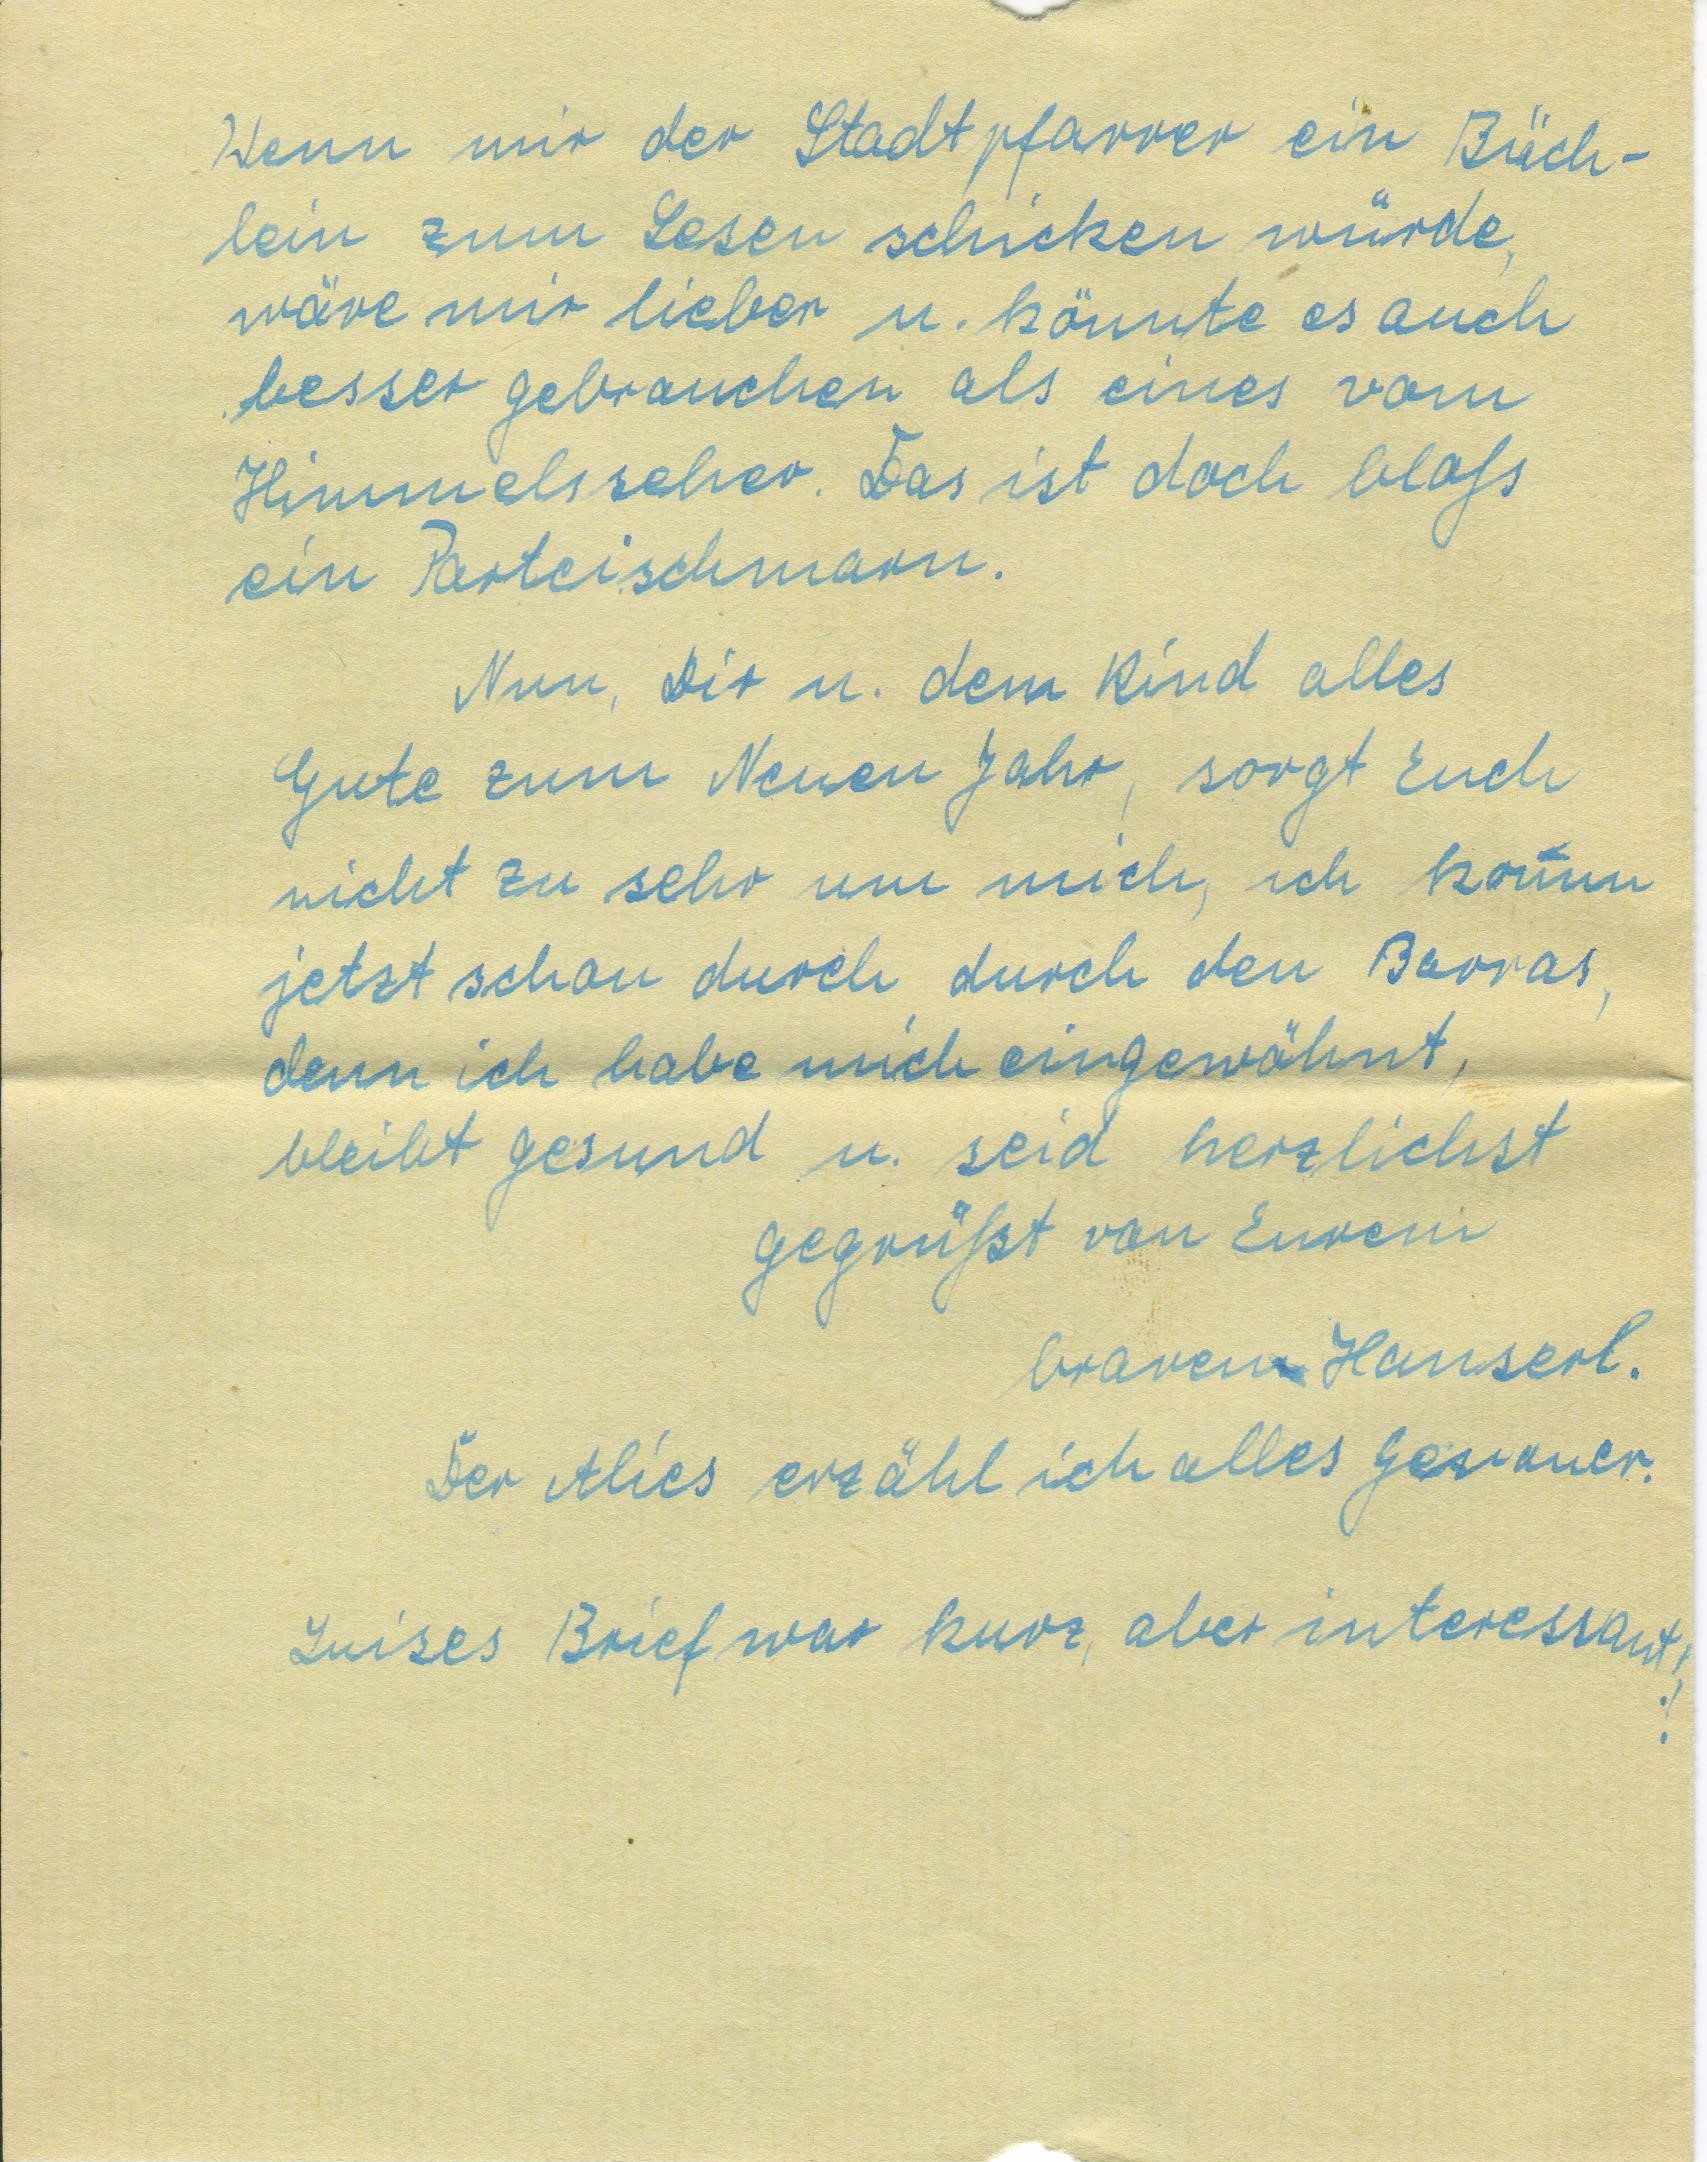 Wenn mir der Stadtpfarrer ein Büch-
lein zum Lesen schicken würde,
wäre mir lieber u. könnte es auch
besser gebrauchen als eines vom
Himmelsseher. Das ist doch bloß
ein Parteischmarn.
Nun, Dir u. dem Kind alles
Gute zum Neuen Jahr, sorgt Euch
nicht zu sehr um mich, ich
jetzt schon durch durch den Barras,
denn ich habe mich eingewöhnt,
bleibt gesund u. seid herzlichst
gegrüßt von Eurem
braven Hanserl.
Der Alies erzähl ich alles genauer.
Luises Brief war kurz, aber interessant!
!